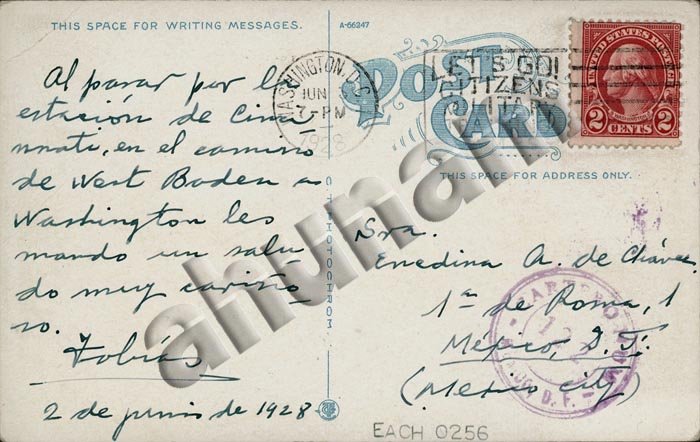 THIS SPACE FOR WRITING MESSAGES.
A-66247
Al pasar por la
estación de Cinci
nnati, en el camino
de West Baden a
Washington les
mando un salu
do muy cariño
so.
Tobías
2 de junio de 1928
C.T. PHOTOCHROM
WASHINGTON, D.C.
JUN
7-PM
1928
POST
CARD
LET'S GO!
CITIZENS
UNITED STATES POSTAGE
2 CENTS 2
THIS SPACE FOR ADDRESS ONLY.
Sra.
Enedina A. de Cháves
1ª de Roma, 1
México, D.F.
(Mexico City)
D.F.
ahunam
EACH 0256